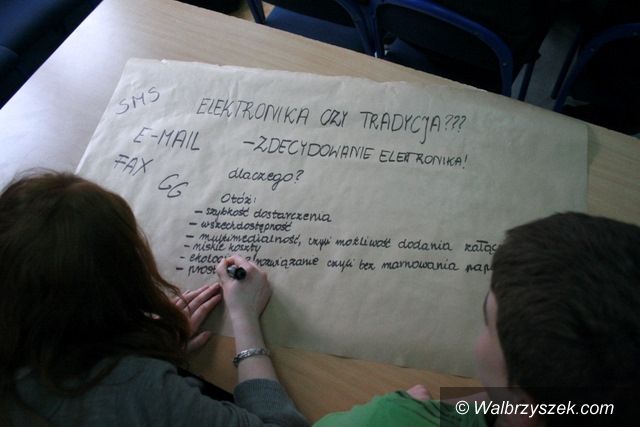 SMS
ELEKTRONIKA CZY TRADYCJA???
E-MAIL
- ZDECYDOWANIE ELEKTRONIKA!
FAX
GG
dlaczego?
Otóż:
- szybkość dostarczenia
- wszechdostępność
- multimedialność, czyli możliwość dodania
- niskie koszty
- rozwiązanie czyli bez marnowania
© Walbrzyszek.com